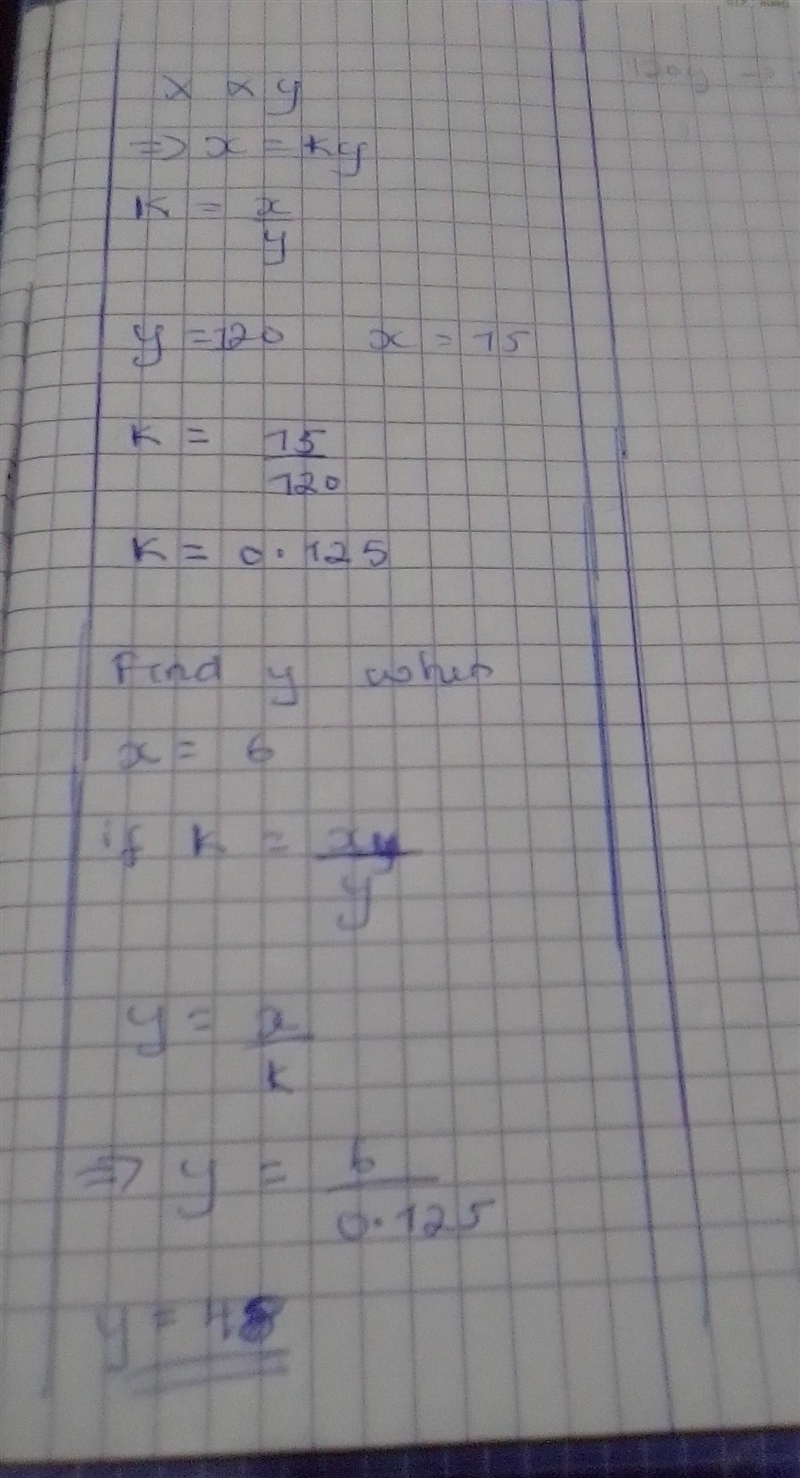 x ∝ y
=> x = ky
K = x/y
y = 120 x = 15
K = 15/120
K = 0.125
Find y when
x = 6
if K = x/y
y = x/K
=> y = 6/0.125
y = 48